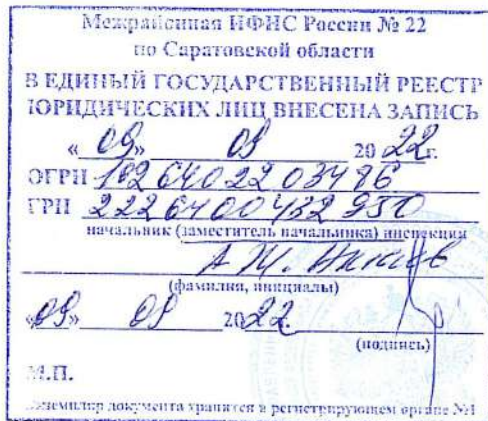 Межрайонная ИФНС России № 22
по Саратовской области
В ЕДИНЫЙ ГОСУДАРСТВЕННЫЙ РЕЕСТР
ЮРИДИЧЕСКИХ ЛИЦ ВНЕСЕНА ЗАПИСЬ
«09» 09 2022г.
ОГРН 1026402203486
ГРН 2226400432950
начальник (заместитель начальника) инспекции
А.Ж.
(фамилия, инициалы)
«09» 09 2022г.
(подпись)
М.П.
экземпляр документа хранится в регистрирующем органе №1